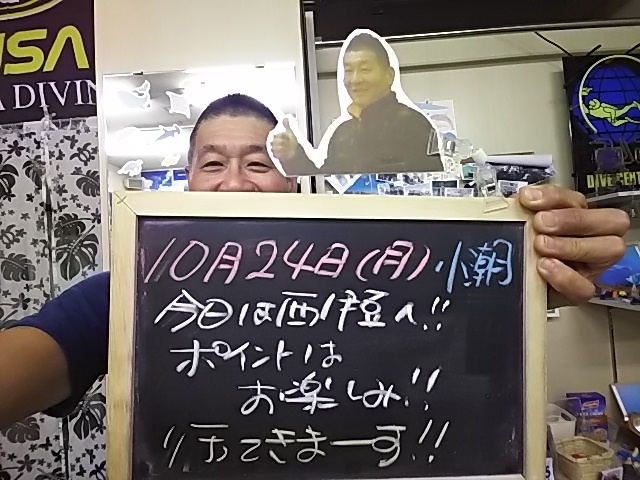 USA
A DIVIN
DIVE CENT
10月24日(月)小潮
今日は西伊豆へ!!
ポイントは
お楽しみ!!
行ってきまーす!!